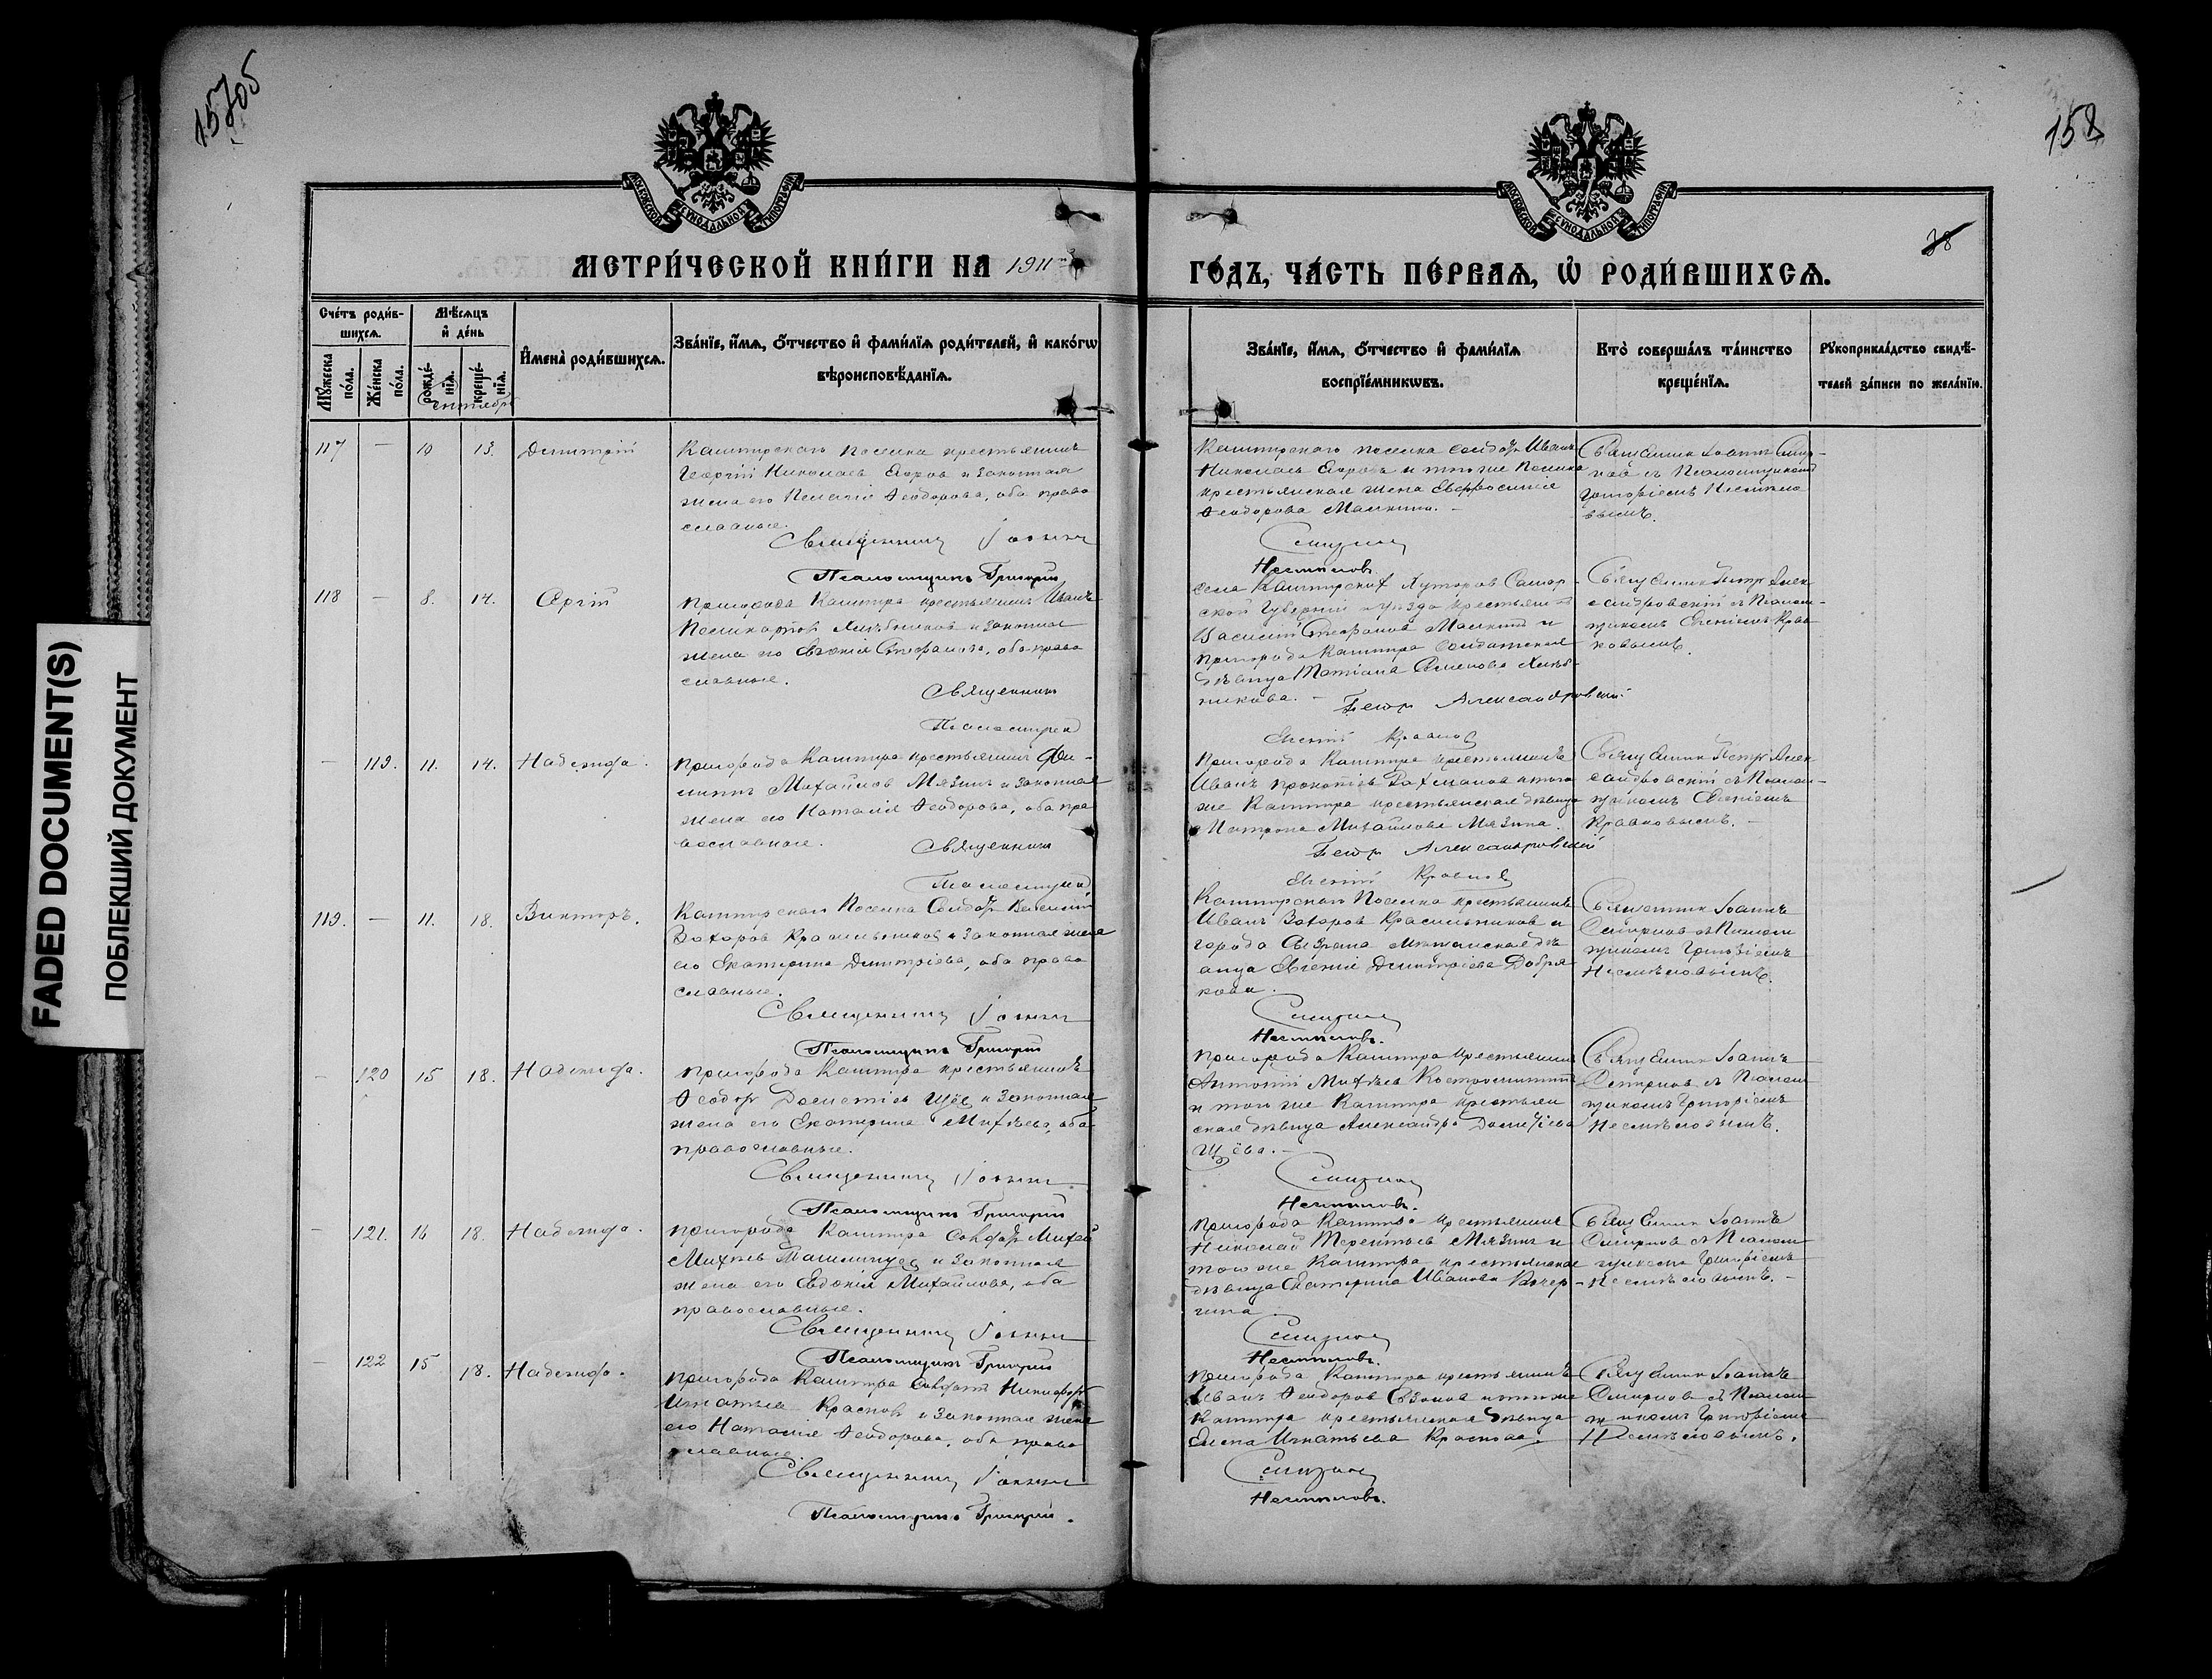 15705
158
38
МОСКОВСКОЙ СѴНОДАЛЬНОЙ ТИПОГРАФІИ
МОСКОВСКОЙ СѴНОДАЛЬНОЙ ТИПОГРАФІИ
МЕТРИ́ЧЕСКОЙ КНИ́ГИ НА 1911
ГО́ДЪ, ЧА́СТЬ ПЕ́РВАѦ, Ѡ҆ РОДИ́ВШИХСѦ.
Сче́тъ роди́в-
шихсѧ.
Мꙋ́жеска
по́ла.
Же́нска
по́ла.
Мѣ́сѧцъ
и҆ де́нь
рожде́-
нїѧ.
креще́-
нїѧ.
Сентябрь
И҆мена̀ роди́вшихсѧ.
Зва́нїе, и҆́мѧ, ѻ҆́тчество и҆ фами́лїѧ роди́телей, и҆ како́гѡ
вѣроисповѣ́данїѧ.
Зва́нїе, и҆́мѧ, ѻ҆́тчество и҆ фами́лїѧ
воспрїе́мникѡвъ.
Кто̀ соверша́лъ та́инство
креще́нїѧ.
Рꙋкоприкла́дство свидѣ́-
телей за́писи по жела́нїю.
117 — 10 13. Димитрій
Каштирскаго поселка крестьянинъ
Георгій Николаевъ Егоров и законная
жена его Пелагія Ѳеодорова, оба право
славные.
Священникъ Іоаннъ
Псаломщикъ Григорій
Каштирскаго поселка солдатъ Иванъ
Николаевъ Егоровъ и того же поселка
крестьянская жена Евфросинія
Ѳеодорова Малкина. —
Смирнов
Несмѣловъ.
Священникъ Іоаннъ Смир-
новъ съ Псаломщикомъ
Григоріемъ Несмѣло
вымъ.
118 — 8. 14. Сергій
Пригорода Каштира крестьянинъ Иванъ
Поликарпов Хлѣбников и законная
жена его Евгенія Стефанова, оба право
славные.
Священник
Псаломщик
села Каштирских Хуторов Самар-
ской Губерніи и уѣзда крестьянин
Василій Стефанов Малкин и
пригорода Каштира солдатская
дѣвица Татіана Семенова Хлѣб-
никова. —
Петр Александровскій
Евгеній Краснов
Священник Петр Алек-
сандровскій съ Псалом-
щиком Евгеніем Крас
новымъ.
— 119. 11. 14. Надежда.
Пригорода Каштира крестьянин Фи-
липп Михайлов Мязин и законная
жена его Наталія Ѳеодорова, оба пра
вославные.
Священник
Псаломщик
Пригорода Каштира крестьянинъ
Иванъ Прокопіевъ Рахманов и того
же Каштира крестьянская дѣвица
Матрона Михайлова Мязина.
Петр Александровскій
Евгеній Краснов
Священник Петр Алек-
сандровскій съ Псалом-
щиком Евгеніемъ
Красновымъ. —
119. — 11. 18. Викторъ.
Каштирскаго Поселка Солдатъ Василій
Захаров Красильников и законная жена
его Екатерина Димитріева, оба право
славные.
Священникъ Іоаннъ
Псаломщикъ Григорій
Каштирскаго Поселка крестьянинъ
Иванъ Захаров Красильников и
города Сызрана мѣщанская дѣ
вица Евгенія Димитріева Добря
кова.
Смирнов
Несмѣловъ.
Священник Іоаннъ
Смирнов съ Псалом
щиком Григоріемъ
Несмѣловымъ.
— 120 15 18. Надежда.
Пригорода Каштира крестьянинъ
Ѳеодор Дометіев Щёв и законная
жена его Екатерина Михѣева, оба
православные.
Священникъ Іоаннъ
Псаломщикъ Григорій
Пригорода Каштира крестьянин
Антоній Михѣев
и того же Каштира крестьян
ская дѣвица Александра Дометіева
Щёва. —
Смирнов
Несмѣловъ.
Священник Іоаннъ
Смирнов съ Псалом
щиком Григоріемъ
Несмѣловымъ.
— 121. 16 18. Надежда.
Пригорода Каштира Солдатъ Михей
Михѣев и законная
жена его Евдокія Михайлова, оба
православные.
Священникъ Іоаннъ
Псаломщикъ Григорій
Пригорода Каштира крестьянинъ
Николай Терентьев Мязин и
того же Каштира крестьянская
дѣвица Екатерина Иванова
Смирнов
Несмѣловъ.
Священник Іоаннъ
Смирнов съ Псалом
щиком Григоріемъ
Несмѣловымъ. —
— 122 15 18. Надежда.
Пригорода Каштира Солдатъ Никифоръ
Игнатьев Краснов и законная жена
его Наталія Ѳеодорова, оба право
славные.
Священникъ Іоаннъ
Псаломщикъ Григорій.
Пригорода Каштира крестьянинъ
Иванъ Ѳеодоров и того же
Каштира крестьянская дѣвица
Елена Игнатьева Краснова.
Смирнов
Несмѣловъ.
Священник Іоаннъ
Смирнов съ Псалом
щиком Григоріемъ
Несмѣловымъ.
FADED DOCUMENT(S)
ПОБЛЕКШИЙ ДОКУМЕНТ